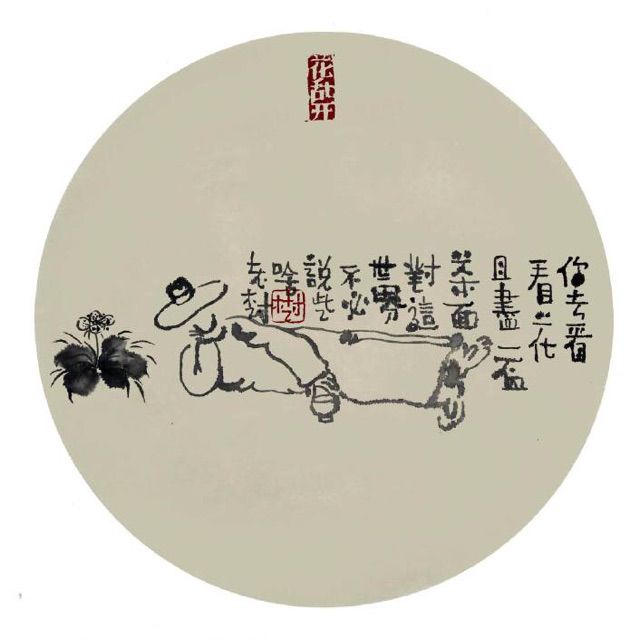 花乱开
你去看
看花
且盡一盃
笑面
對這
世界
不必
說些
啥
老树